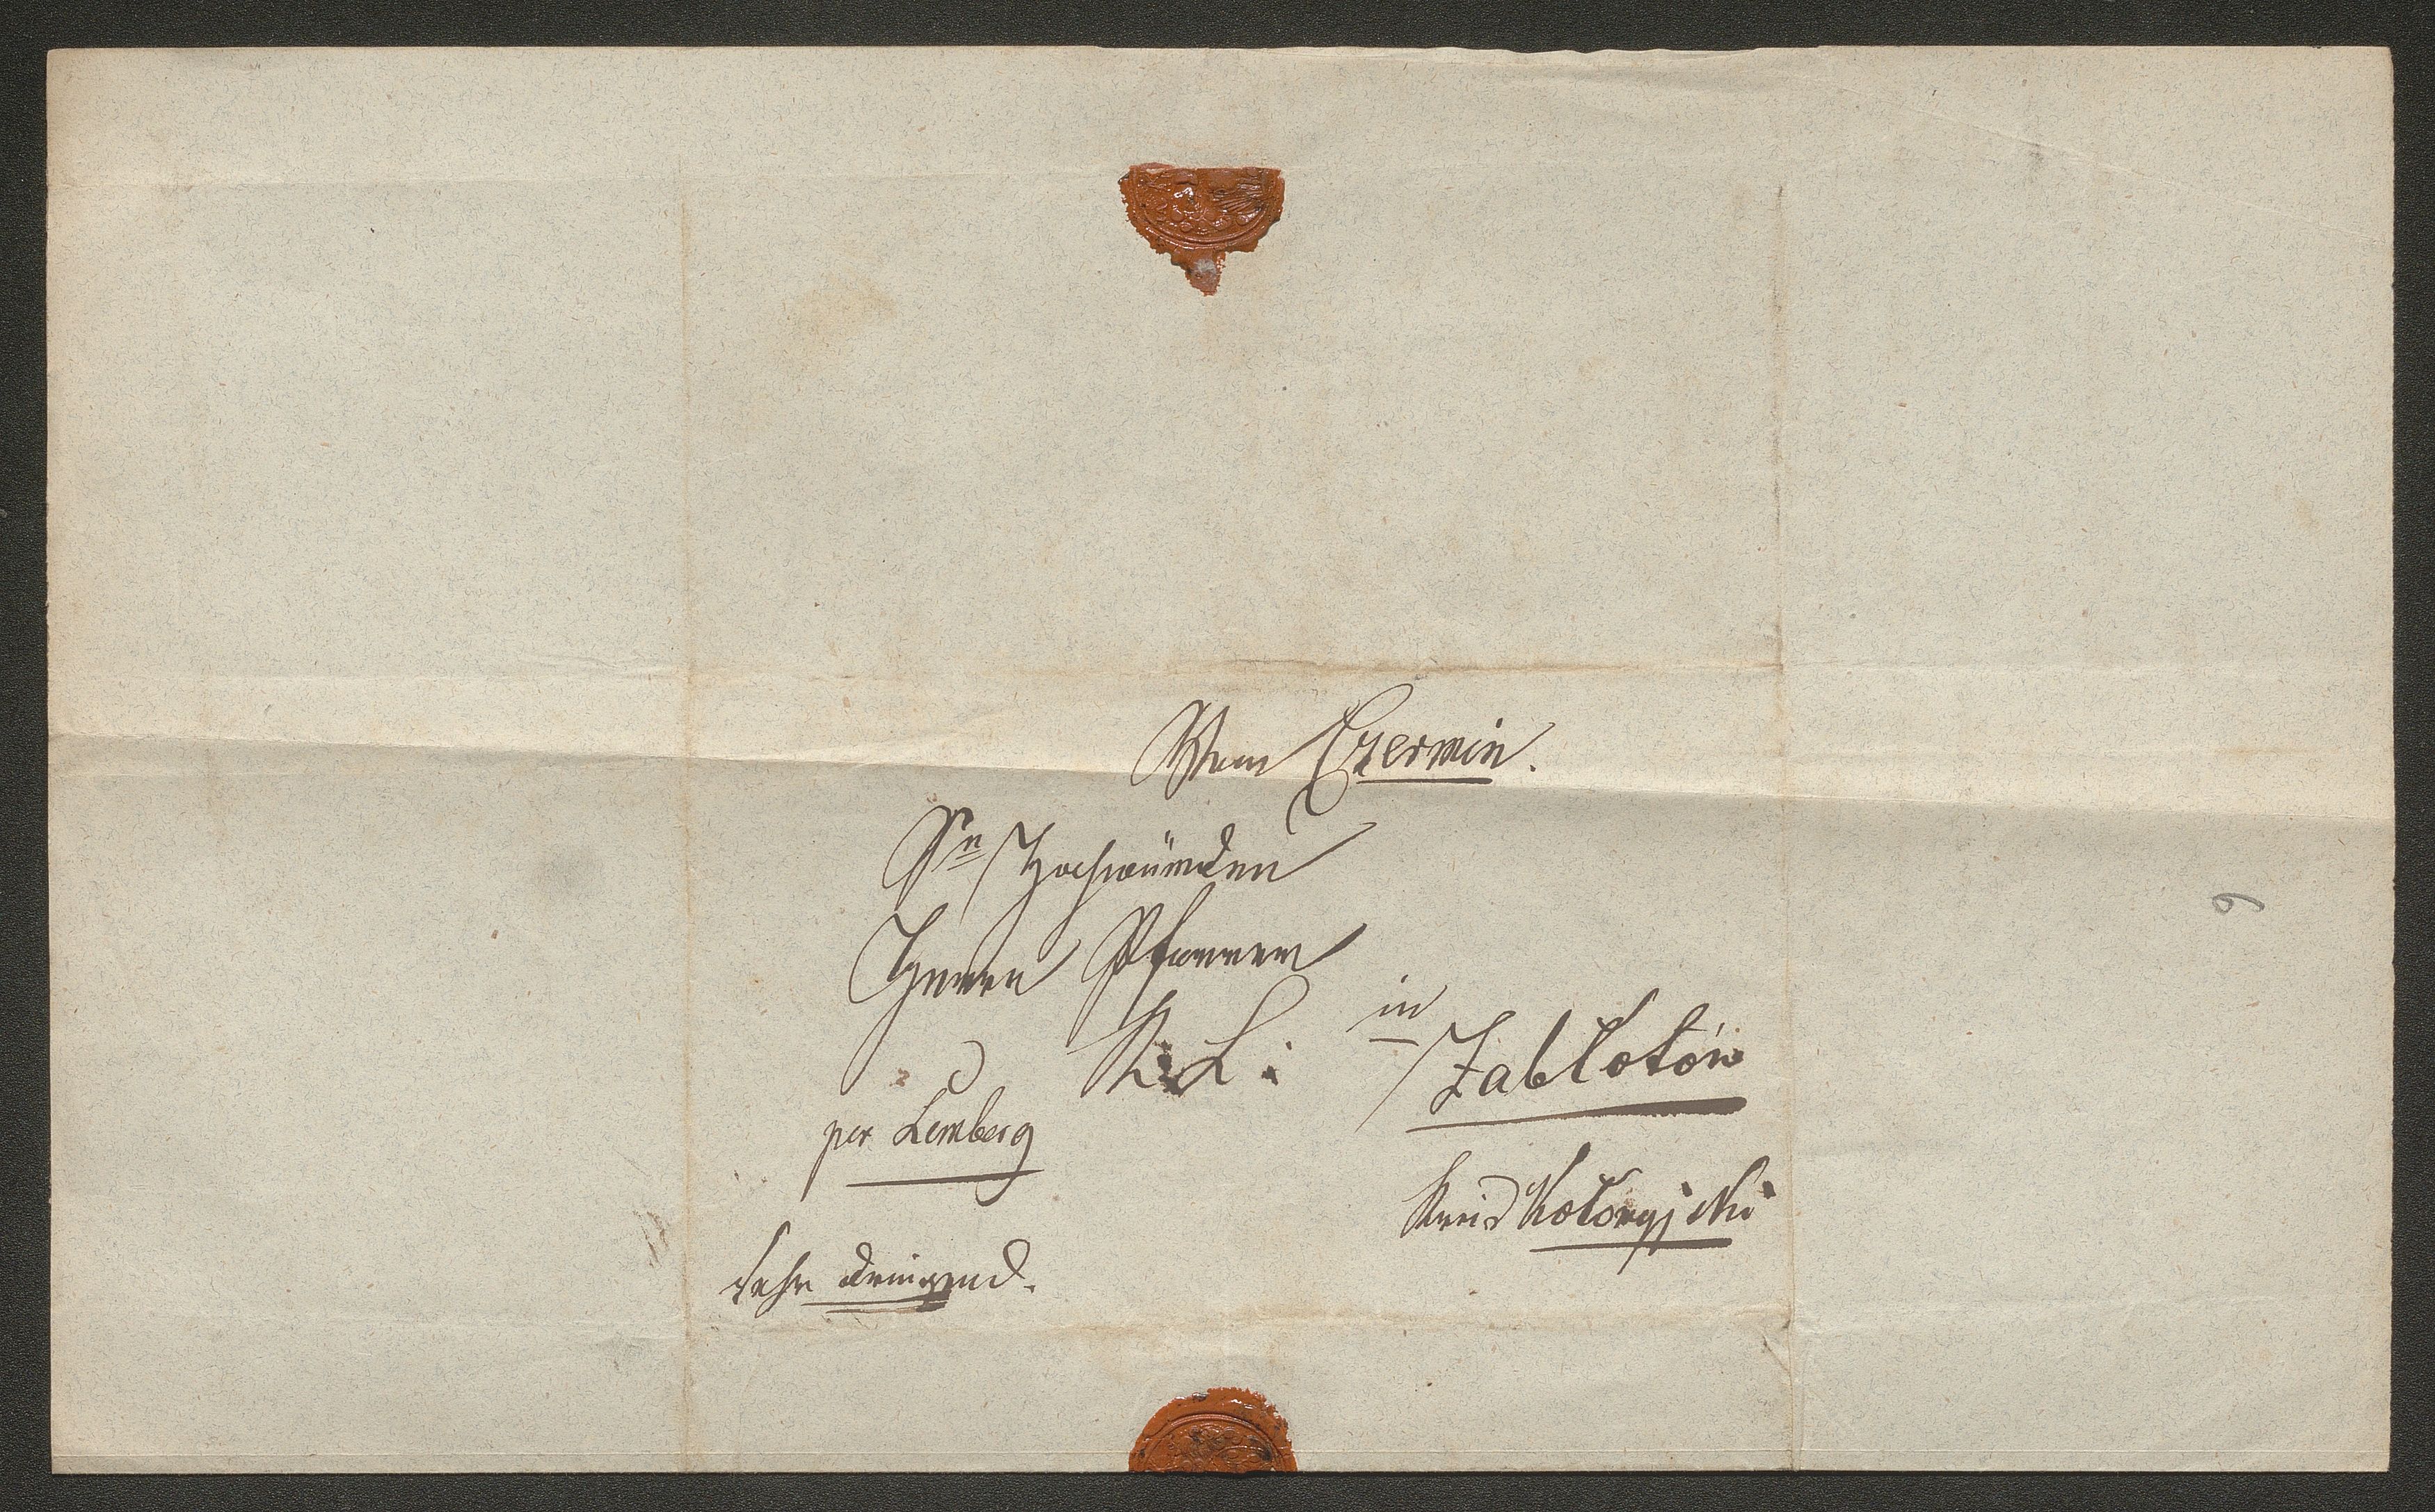 Von Czermin.
Sr Hochwürden
Herrn Pfarrer
R: L: in Zabłotów
per Lemberg
Kreis
sehr dringend.
6